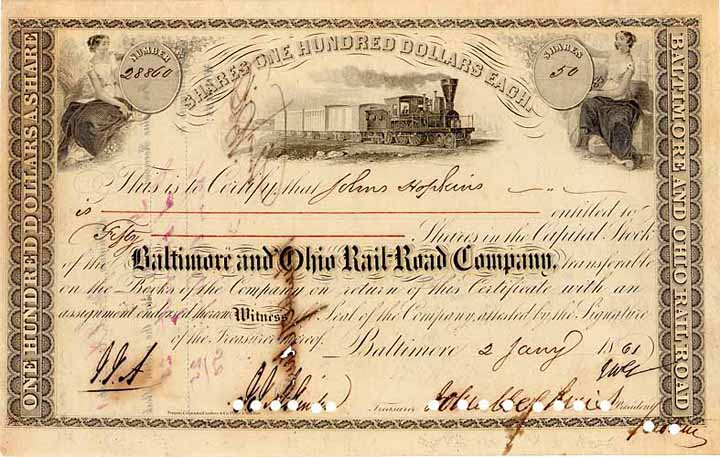 NUMBER
28860
SHARES ONE HUNDRED DOLLARS EACH.
SHARES
50
ONE HUNDRED DOLLARS A SHARE
BALTIMORE AND OHIO RAILROAD
This is to Certify, that Johns Hopkins
is entitled to
Fifty Shares in the Capital Stock
of the Baltimore and Ohio Rail-Road Company, transferable
on the Books of the Company on return of this Certificate with an
assignment endorsed thereon Witness the Seal of the Company, attested by the Signature
of the Treasurer thereof. Baltimore 2 Jany 1861
J.J.A
Treasurer
President